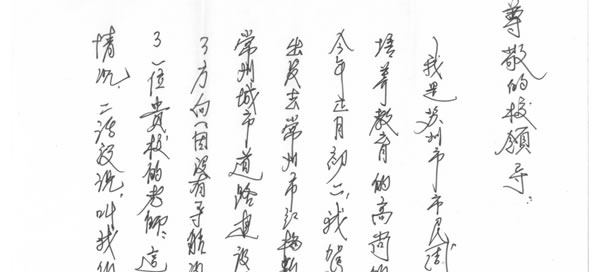 尊敬的校领导：
我是苏州市市民
培养教育的高尚的
今年正月初二，我
出发去常州市
常州城市道路建设
了方向(因没有导航
了一位贵校的老师：这
情况，二话没说，叫我